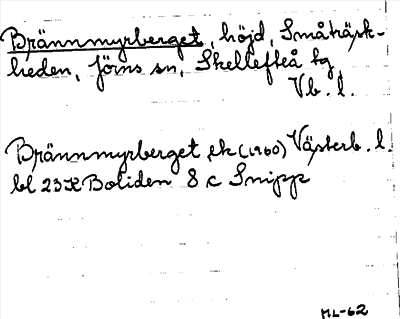 Brännmyrberget, höjd, Småträsk-
heden, Jörns sn, Skellefteå tg,
Vb. l.
Brännmyrberget, ek (1960) Västerb. l.
bl 23K Boliden 8 c Snipp
ML-62